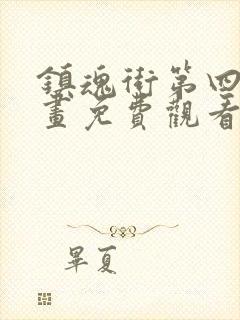 鎮魂街第四
畫免費觀看
畢夏